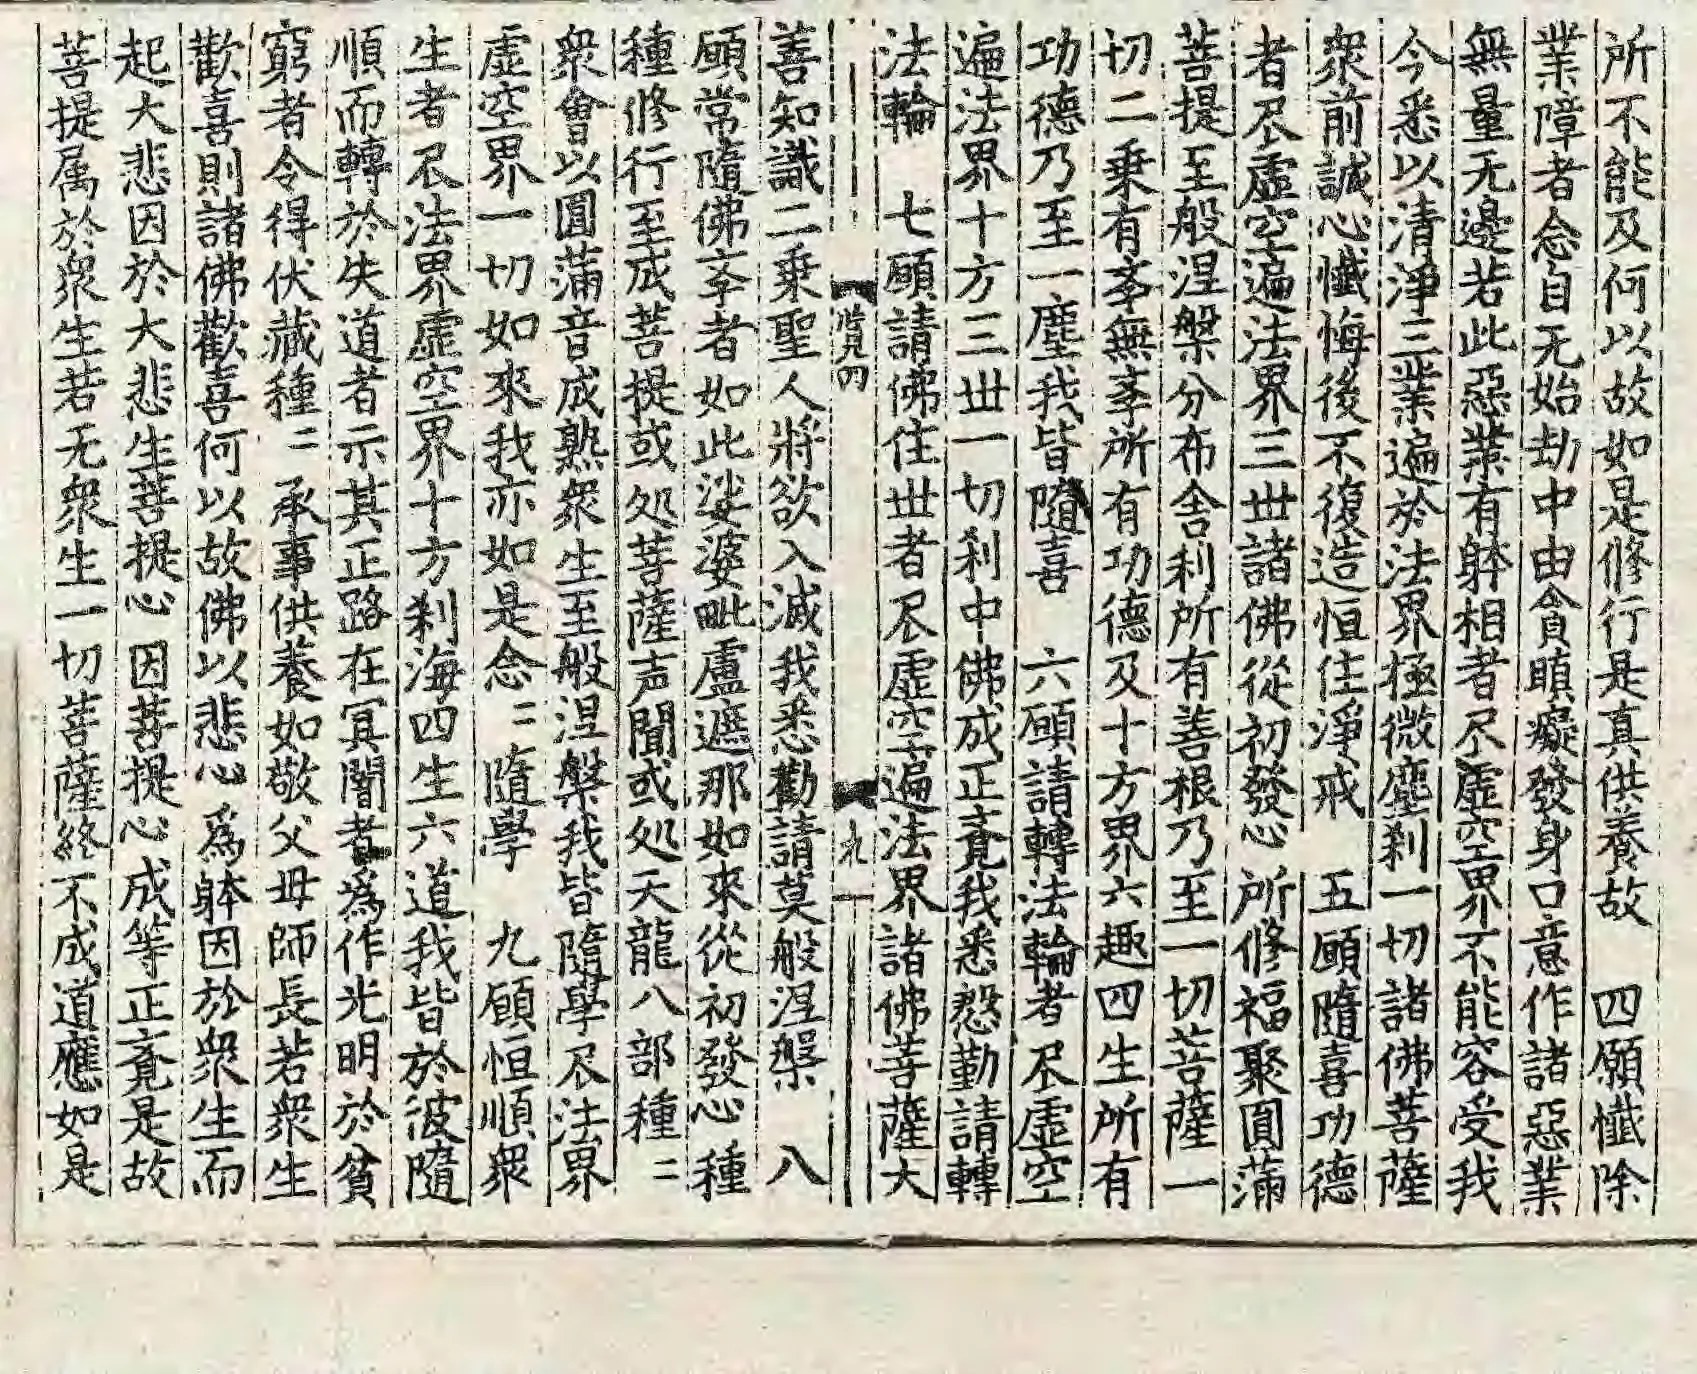 所不能及何以故如是修行是真供養故　四願懺除
業障者念自无始劫中由貪瞋癡發身口意作諸惡業
無量无邊若此惡業有躰相者尽虛空界不能容受我
今悉以清淨三業遍於法界極微塵刹一切諸佛菩薩
衆前誠心懺悔後不復造恒住淨戒　五願隨喜功德
者尽虛空遍法界三世諸佛從初發心所修福聚圓滿
菩提至般涅槃分布舍利所有善根乃至一切菩薩一
切二乗有斈無斈所有功德及十方界六趣四生所有
功德乃至一塵我皆隨喜　六願請轉法輪者尽虛空
遍法界十方三世一切刹中佛成正覔我悉慇勤請轉
法輪　七願請佛住世者尽虛空遍法界諸佛菩薩大
㳙四
九
善知識二乗聖人將欲入滅我悉勸請莫般涅槃　八
願常隨佛斈者如此娑婆毗盧遮那如來從初發心種
種修行至成菩提或处菩薩声聞或处天龍八部種〻
衆會以圓滿音成熟衆生至般涅槃我皆隨學尽法界
虛空界一切如來我亦如是念〻隨學　九願恒順衆
生者尽法界虛空界十方刹海四生六道我皆於彼隨
順而轉於失道者示其正路在冥闇者為作光明於貧
窮者令得伏藏種〻承事供養如敬父母師長若衆生
歡喜則諸佛歡喜何以故佛以悲心為躰因於衆生而
起大悲因於大悲生菩提心因菩提心成等正覔是故
菩提属於衆生若无衆生一切菩薩終不成道應如是